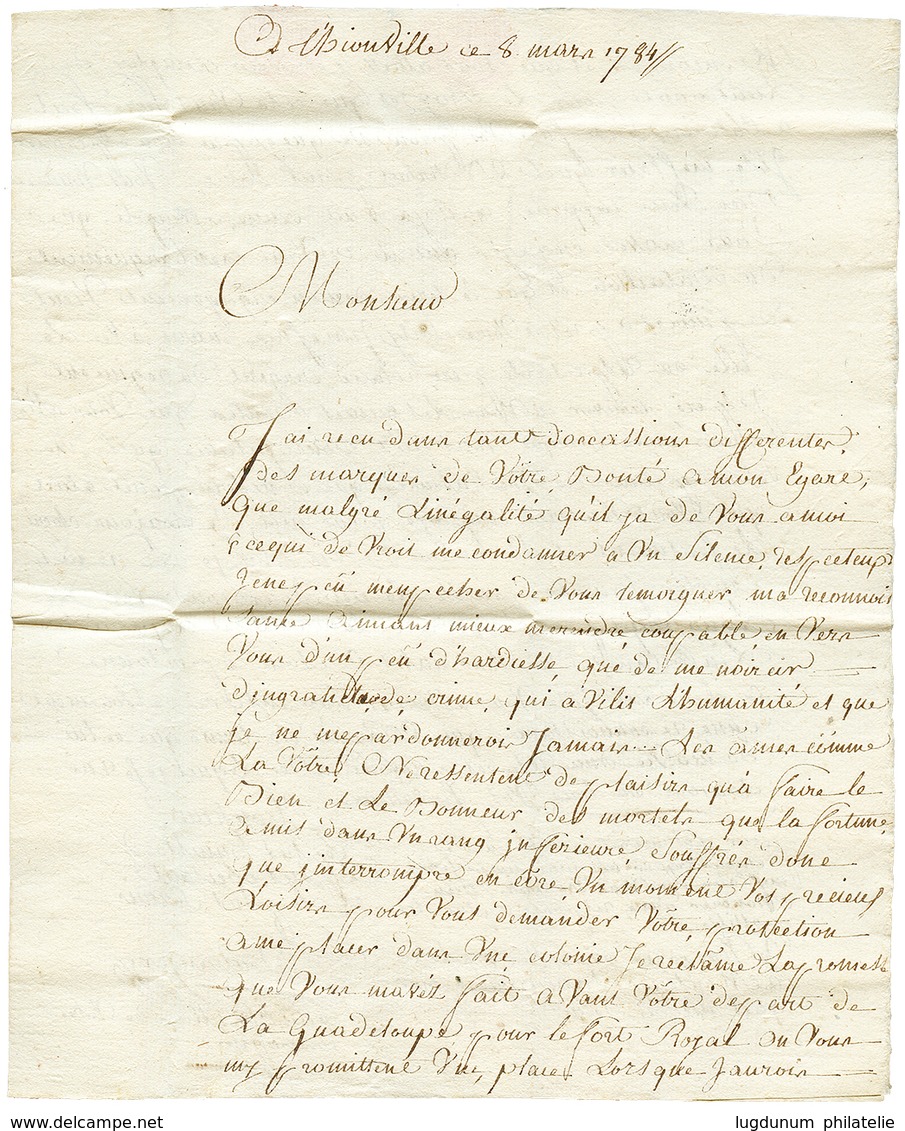 A thionville ce 8 mars 1784
Monsieur
J'ai recu dans tant d'occassions differentes
des marques de Vôtre Bonté a mon Egard,
que malgré Linégalité qu'il ya de Vous a moi
ce qui de Vroit me condanner a Un Silence respecteux
je ne peü menpecher de Vous temoigner ma reconnois
sance aimant mieux me rendre coupable en Vers
Vous d'un peü d'hardiesse, que de me noircir
d'ingratitude crime qui aVilis L'humanité et que
je ne me pardonnerois Jamais Les ames comme
La Vôtre, Ne ressentent de plaisirs qu'a faire le
Bien et Le Bonheur des mortels que la fortune
a mis dans Un rang jnferieure, Souffrés donc
que j'interrompre encore Un moment Vos precieux
Loisirs pour Vous demander Vôtre protection
a me placer dans Une colonie Je reclame La promesse
que Vous mavéz fait aVant Vôtre depart de
La Guadeloupe pour le fort Royal ou Vous
my promittene Une place Lorsque Jaurois
delcampe.net
lugdunum philatelie